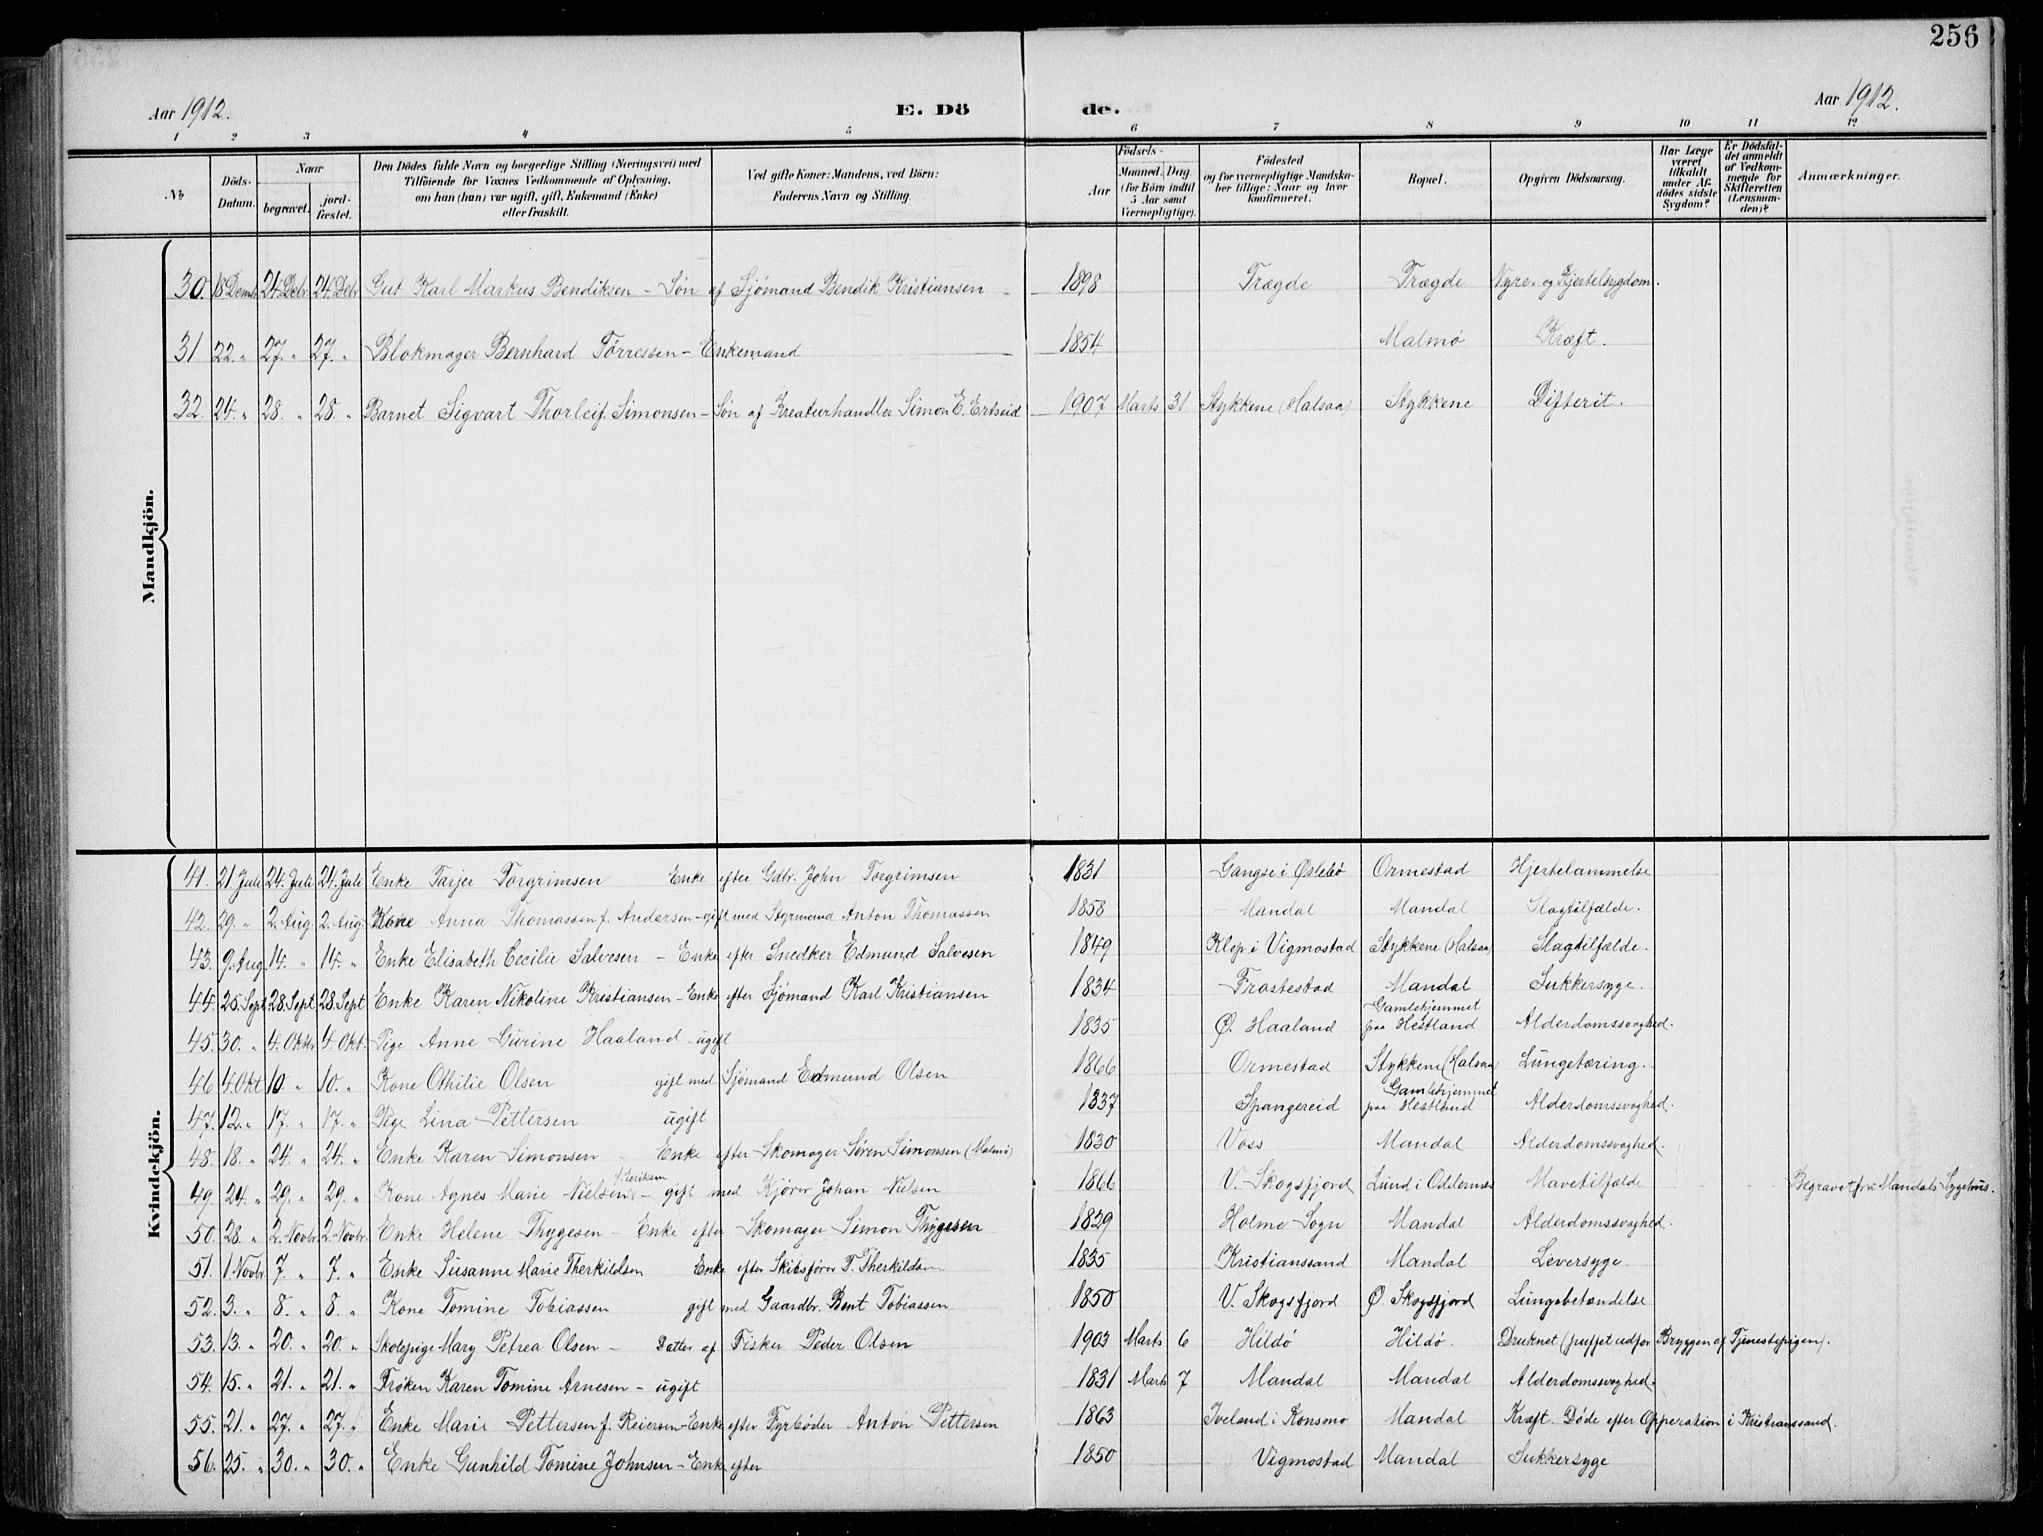 256
Aar 1912. E. Dö de. Aar 1912.
1 2 3 4 5 6 7 8 9 10 11 12
No Döds-Datum. Naar begravet. jord-fæstet. Den Dödes fulde Navn og borgerlige Stilling (Næringsvei) med Tilföiende for Voxnes Vedkommende af Oplysning, om han (hun) var ugift, gift, Enkemand (Enke) eller fraskilt. Ved gifte Koner: Mandens, ved Börn: Faderens Navn og Stilling. Födsels- Aar Maaned. Dag. (for Börn indtil 5 Aar samt Værnepligtige). Födested og for værnepligtige Mandskaber tillige: Naar og hvor konfirmeret. Bopæl. Opgiven Dödsaarsag. Har Læge været tilkaldt under Afdödes sidste Sygdom? Er Dödsfaldet anmeldt af Vedkommende for Skifteretten (Lensmanden)? Anmærkninger.
Mandkjön.
30. 18 Decmb. 24. Debr 24. Debr Gut Karl Markus Bendiksen - Søn af Sjømand Bendik Kristiansen 1898 Trægde Trægde Nyre- og Hjertesygdom.
31 22. " 27. " 27. " Blokmager Bernhard Tørressen - Enkemand 1854 Malmø Kræft.
32. 24. " 28. " 28. " Barnet Sigvart Thorleif Simonsen - Søn af Kreaturhandler Simon E. Ertseid 1907 Marts 31 Stykkene (Halsaa) Stykkene Difterit.
Kvindekjön.
41. 21 Juli 24. Juli 24. Juli Enke Tarjer Torgrimsen Enke efter Gdbr. John Torgrimsen 1831 Gangse i Øslebø Ormestad Hjertelammelse
42. 29. " 2. Aug. 2. Aug. Kone Anna Thomassen f. Andersen - gift med Styrmand Anton Thomassen 1858 Mandal Mandal Slagtilfælde.
43. 9. Aug 14. " 14. " Enke Elisabeth Cecilie Salvesen - Enke efter Snedker Edmund Salvesen 1849 Klep i Vigmostad Stykkene (Halsaa) Slagtilfælde.
44. 25. Sept. 28. Sept 28. Sept Enke Karen Nikoline Kristiansen - Enke efter Sjømand Karl Kristiansen 1834 Frostestad Mandal Sukkersyge.
45. 30. " 4. Oktbr 4. Okt. Pige Anne Gurine Haaland - ugift 1835 Ø. Haaland Gamlehjemmet paa Hestland Alderdomssvaghed.
46 4 Okt 10. " 10. " Kone Othilie Olsen gift med Sjømand Edmund Olsen 1866 Ormestad Stykkene (Halsaa) Lungetæring.
47. 12. " 17. " 17. " Pige Lina Pettersen ugift 1837 Spangereid Gamlehjemmet paa Hestland Alderdomssvaghed.
48. 18. " 24. " 24. " Enke Karen Simonsen - Enke efter Skomager Søren Simonsen (Malmø) 1830 Voss Mandal Alderdomssvaghed.
49. 24. " 29. " 29. " Kone Agnes Marie Nielsen f. Eriksen - gift med Kjører Johan Nielsen 1866 V. Skogsfjord Lund i Oddernæs Mavetilfælde Begravet fra Mandals Sygehus.
50. 28. " 2. Novbr. 2. Novbr. Enke Helene Thygesen - Enke efter Skomager Simon Thygesen 1829 Holme Sogn Mandal Alderdomssvaghed.
51. 1 Novbr. 7. " 7. " Enke Susanne Marie Therkildsen Enke efter Skibsfører T. Therkildsen 1835 Kristianssand Mandal Leversyge.
52. 3. " 8. " 8. " Kone Tomine Tobiassen gift med Gaardbr. Bent Tobiassen 1850 V. Skogsfjord Ø. Skogsfjord Lungebetændelse
53. 13. " 20. " 20. " Skolepige Mary Petrea Olsen - Datter af Fisker Peder Olsen 1903 Marts 6 Hildø Hildø. Druknet (puffet udfor Bryggen af Tjenestepigen).
54. 15. " 21. " 21. " Frøken Karen Tomine Arnesen - ugift 1831 Marts 7 Mandal Mandal Alderdomssvaghed.
55. 21. " 27. " 27. " Enke Marie Pettersen f. Reiersen - Enke efter Fyrbøder Anton Pettersen 1863 Iveland i Konsmo Mandal Kræft. Døde efter Opperation i Kristianssand.
56. 25. " 30. " 30. " Enke Gunhild Tomine Johnsen - Enke efter 1850 Vigmostad Mandal Sukkersyge